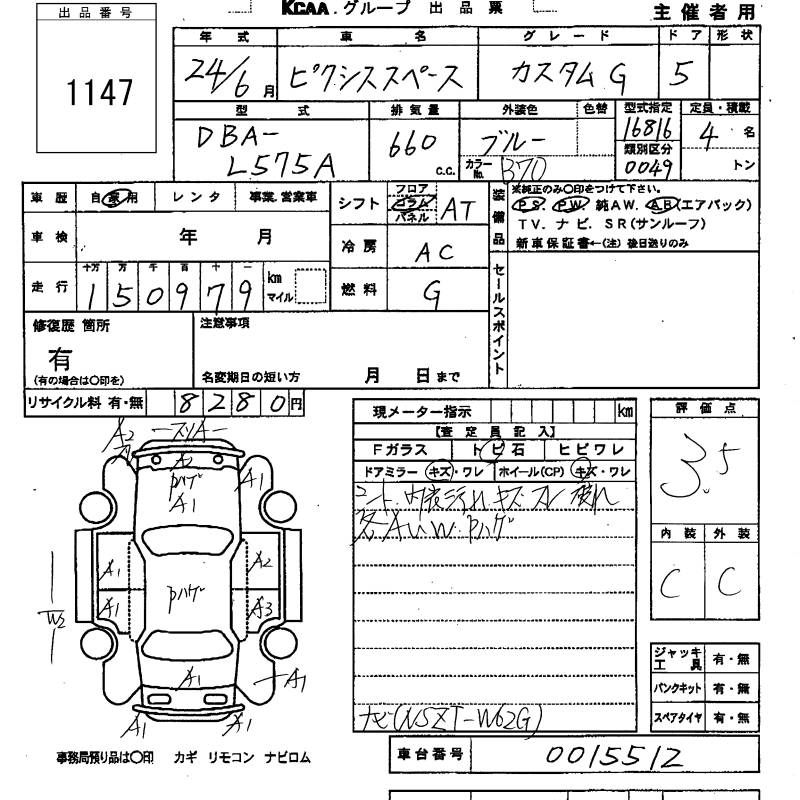 KCAA.グループ 出品票
主催者用
出品番号
1147
年式 車名 グレード ドア 形状
24/6月 ピクシススペース カスタムG 5
型式 排気量 外装色 色替 型式指定 定員・積載
DBA-L575A 660 c.c. ブルー 16816 4名
カラーNo. B70 類別区分 0049 トン
車歴 自家用 レンタ 事業.営業車
シフト フロア コラム パネル AT
装備品 ※純正のみ〇印をつけて下さい。
PS. PW. 純AW. AB(エアバック)
TV. ナビ. SR(サンルーフ)
新車保証書←(注)後日送りのみ
車検 年 月
冷房 AC
走行 十万 万 千 百 十 一
150979 km マイル
燃料 G
セールスポイント
修復歴 箇所
有
(有の場合は〇印を)
注意事項
名変期日の短い方 月 日まで
リサイクル料 有・無 8280円
現メーター指示 km
【査定員記入】
Fガラス トビ石 ヒビワレ
ドアミラー キズ・ワレ ホイール(CP) キズ・ワレ
シート.内装汚れ キズ スレ 破れ
各AUW.Pハゲ
ナビ(NSZT-W62G)
評価点
3.5
内装 外装
C C
ジャッキ 工具 有・無
パンクキット 有・無
スペアタイヤ 有・無
A2 A2
PハゲA1 A1
A1 A2
A1 Pハゲ A3
W2
A1 A1
A1 A1
事務局預り品は〇印 カギ リモコン ナビロム
車台番号 0015512